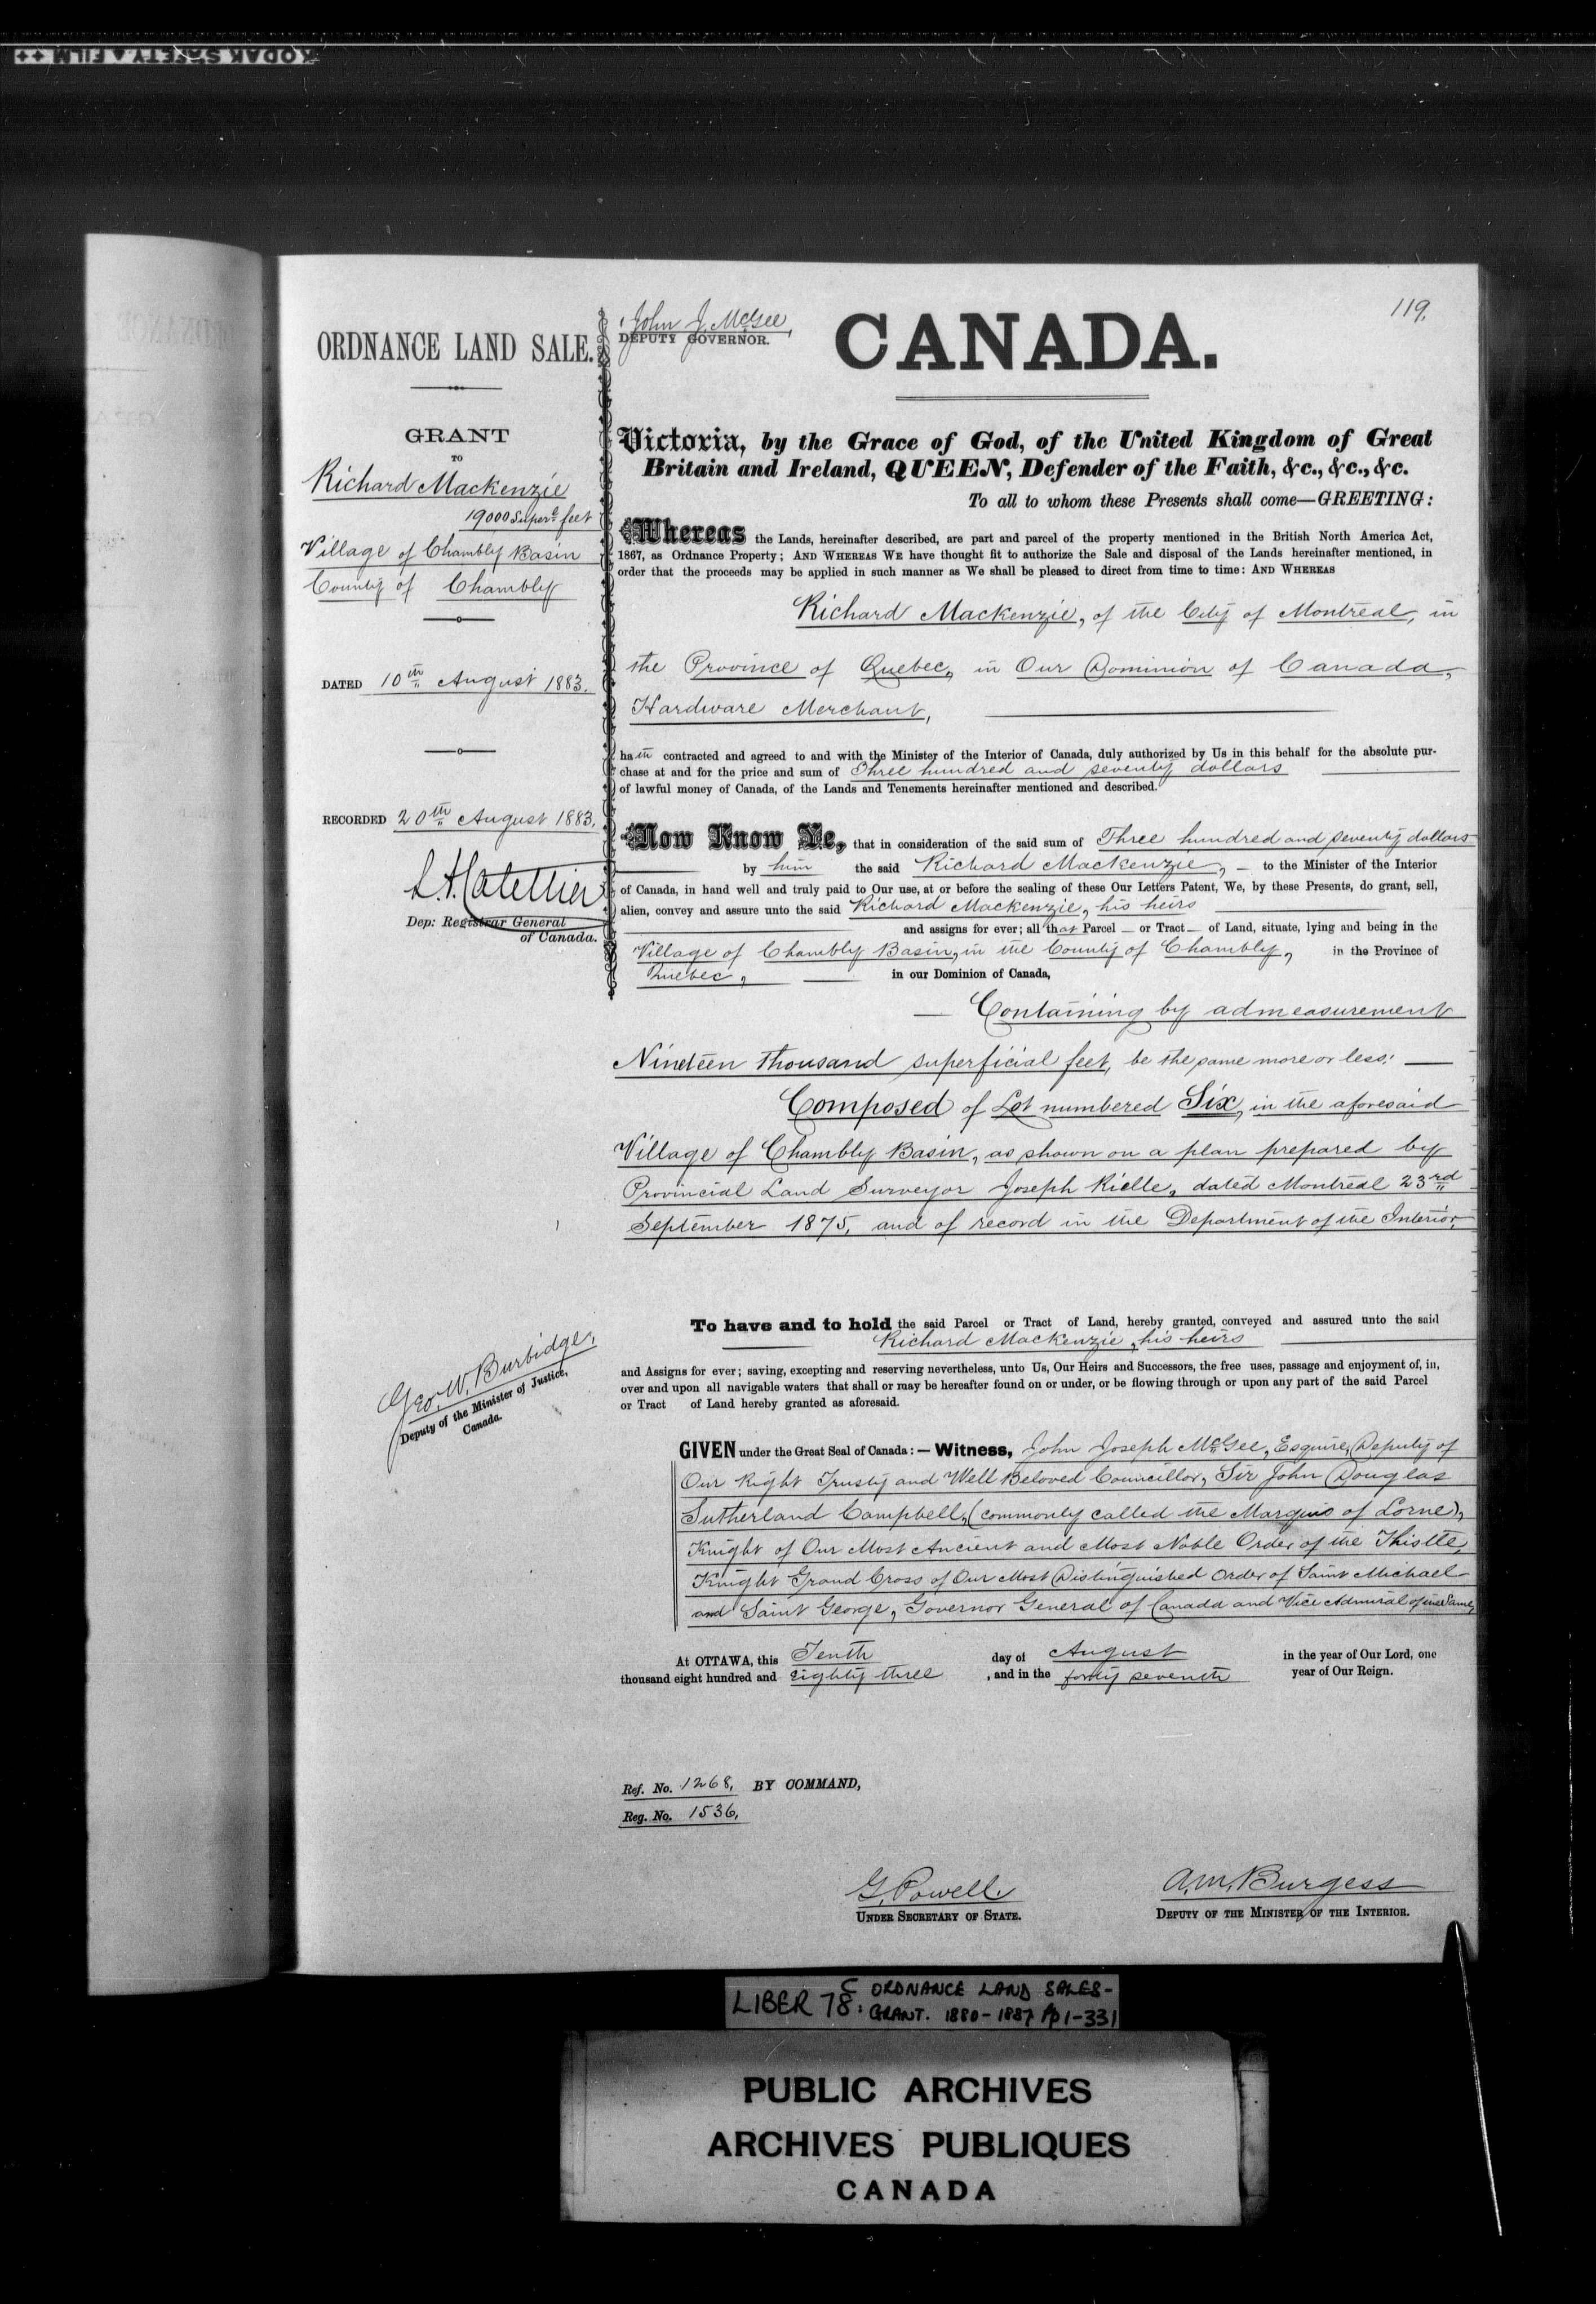 KODAK SAFETY FILM ++
119.
ORDNANCE LAND SALE.
GRANT
TO
Richard Mackenzie
19000 Superl feet
Village of Chambly Basin
County of Chambly
DATED 10th August 1883.
RECORDED 20th August 1883.
L.A. Catellier
Dep: Registrar General
of Canada.
Geo. W. Burbidge,
Deputy of the Minister of Justice,
Canada.
John J. McGee,
DEPUTY GOVERNOR.
CANADA.
Victoria, by the Grace of God, of the United Kingdom of Great
Britain and Ireland, QUEEN, Defender of the Faith, &c., &c., &c.
To all to whom these Presents shall come—GREETING:
Whereas the Lands, hereinafter described, are part and parcel of the property mentioned in the British North America Act,
1867, as Ordnance Property; AND WHEREAS WE have thought fit to authorize the Sale and disposal of the Lands hereinafter mentioned, in
order that the proceeds may be applied in such manner as We shall be pleased to direct from time to time: AND WHEREAS
Richard Mackenzie, of the City of Montreal, in
the Province of Quebec, in Our Dominion of Canada,
Hardware Merchant,
hath contracted and agreed to and with the Minister of the Interior of Canada, duly authorized by Us in this behalf for the absolute pur-
chase at and for the price and sum of Three hundred and seventy dollars
of lawful money of Canada, of the Lands and Tenements hereinafter mentioned and described.
Now Know Ye, that in consideration of the said sum of Three hundred and seventy dollars
by him the said Richard Mackenzie, — to the Minister of the Interior
of Canada, in hand well and truly paid to Our use, at or before the sealing of these Our Letters Patent, We, by these Presents, do grant, sell,
alien, convey and assure unto the said Richard Mackenzie, his heirs
and assigns for ever; all that Parcel — or Tract — of Land, situate, lying and being in the
Village of Chambly Basin, in the County of Chambly, in the Province of
Quebec, in our Dominion of Canada,
— Containing by admeasurement
Nineteen thousand superficial feet, be the same more or less: —
Composed of Lot numbered Six, in the aforesaid
Village of Chambly Basin, as shown on a plan prepared by
Provincial Land Surveyor Joseph Rielle, dated Montreal 23rd
September 1875, and of record in the Department of the Interior.
To have and to hold the said Parcel or Tract of Land, hereby granted, conveyed and assured unto the said
Richard Mackenzie, his heirs
and Assigns for ever; saving, excepting and reserving nevertheless, unto Us, Our Heirs and Successors, the free uses, passage and enjoyment of, in,
over and upon all navigable waters that shall or may be hereafter found on or under, or be flowing through or upon any part of the said Parcel
or Tract of Land hereby granted as aforesaid.
GIVEN under the Great Seal of Canada:—Witness, John Joseph McGee, Esquire, Deputy of
Our Right Trusty and Well Beloved Councillor, Sir John Douglas
Sutherland Campbell, (commonly called the Marquis of Lorne),
Knight of Our Most Ancient and Most Noble Order of the Thistle,
Knight Grand Cross of Our Most Distinguished Order of Saint Michael
and Saint George, Governor General of Canada and Vice Admiral of the Same,
At OTTAWA, this Tenth day of August in the year of Our Lord, one
thousand eight hundred and eighty three, and in the forty seventh year of Our Reign.
Ref. No. 1268, BY COMMAND,
Reg. No. 1536,
G. Powell.
UNDER SECRETARY OF STATE.
A.M. Burgess
DEPUTY OF THE MINISTER OF THE INTERIOR.
LIBER 78C: ORDNANCE LAND SALES-
GRANT. 1880-1887 Pp 1-331
PUBLIC ARCHIVES
ARCHIVES PUBLIQUES
CANADA